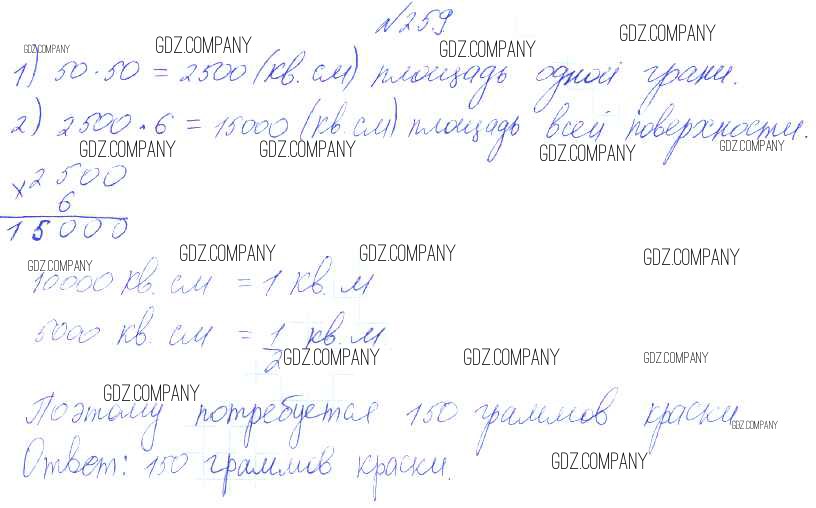 №259
GDZ.COMPANY GDZ.COMPANY GDZ.COMPANY GDZ.COMPANY
1) 50·50 = 2500 (кв. см) площадь одной грани.
2) 2500·6 = 15000 (кв. см) площадь всей поверхности.
GDZ.COMPANY GDZ.COMPANY GDZ.COMPANY GDZ.COMPANY
x 2500
6
15000
GDZ.COMPANY GDZ.COMPANY GDZ.COMPANY GDZ.COMPANY
10000 кв. см = 1 кв. м
5000 кв. см = 1/2 кв. м
GDZ.COMPANY GDZ.COMPANY GDZ.COMPANY
GDZ.COMPANY
Поэтому потребуется 150 граммов краски
GDZ.COMPANY
Ответ: 150 граммов краски.
GDZ.COMPANY